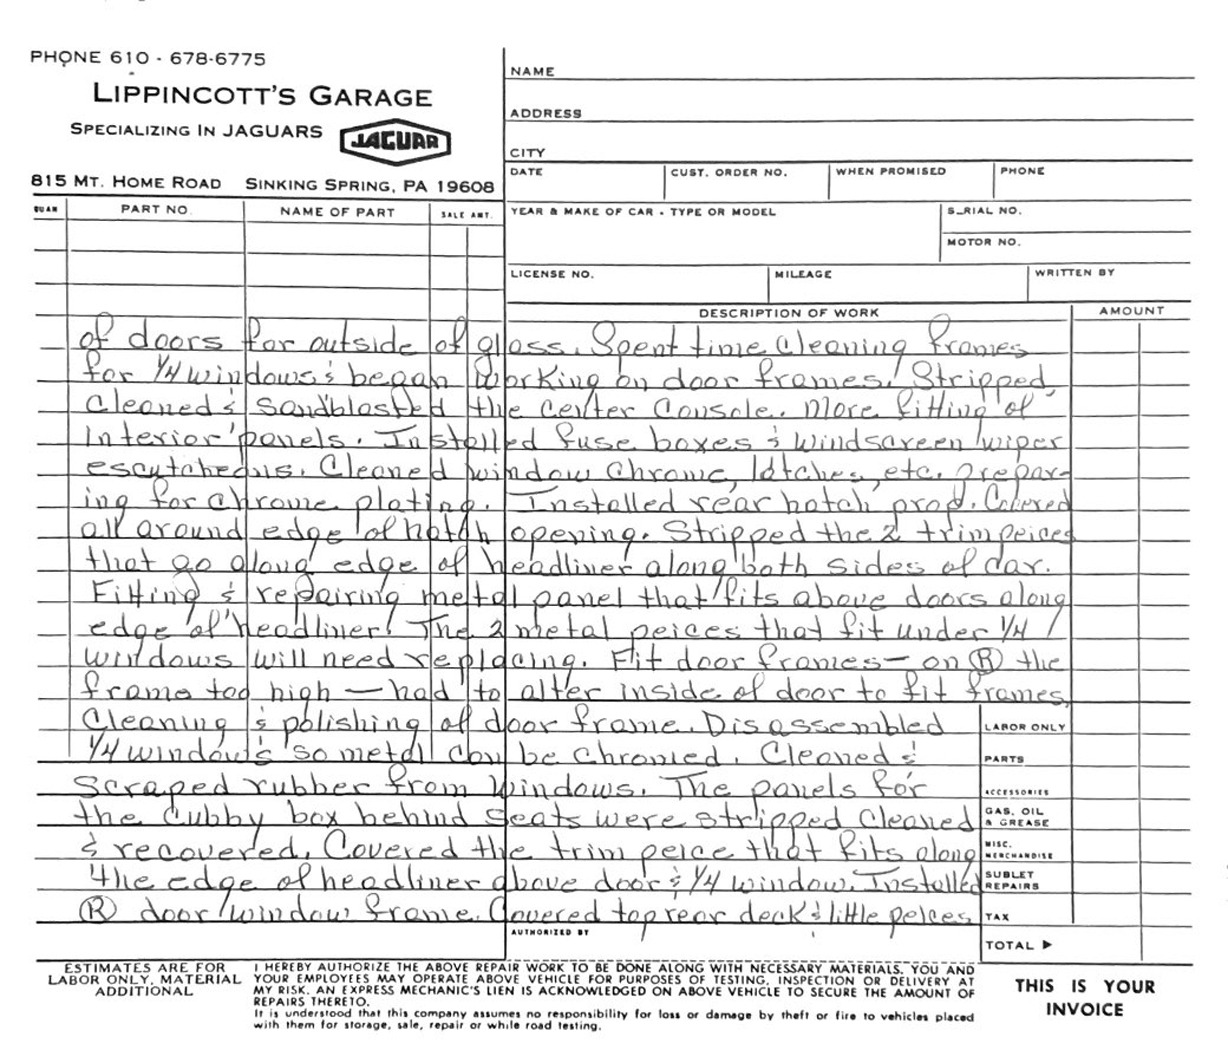 PHONE 610 - 678-6775
LIPPINCOTT'S GARAGE
SPECIALIZING IN JAGUARS JAGUAR
815 MT. HOME ROAD SINKING SPRING, PA 19608
NAME
ADDRESS
CITY
DATE CUST. ORDER NO. WHEN PROMISED PHONE
QUAN PART NO. NAME OF PART SALE AMT.
YEAR & MAKE OF CAR - TYPE OR MODEL SERIAL NO.
MOTOR NO.
LICENSE NO. MILEAGE WRITTEN BY
DESCRIPTION OF WORK AMOUNT
of doors for outside of glass. Spent time cleaning frames
for 1/4 windows & began working on door frames. Stripped,
cleaned & sandblasted the center console. More fitting of
interior panels. Installed fuse boxes & windscreen wiper
escutcheons. Cleaned window chrome, latches, etc. prepar-
ing for chrome plating. Installed rear hatch prod. Covered
all around edge of hatch opening. Stripped the 2 trim peices
that go along edge of headliner along both sides of car.
Fitting & repairing metal panel that fits above doors along
edge of headliner. The 2 metal peices that fit under 1/4
windows will need replacing. Fit door frames - on Ⓡ the
frame too high - had to alter inside of door to fit frames,
Cleaning & polishing of door frame. Disassembled
1/4 windows so metal can be chromed. Cleaned &
scraped rubber from windows. The panels for
the cubby box behind seats were stripped cleaned
& recovered. Covered the trim peice that fits along
the edge of headliner above door & 1/4 window. Installed
Ⓡ door window frame. Covered top rear deck & little peices
LABOR ONLY
PARTS
ACCESSORIES
GAS, OIL & GREASE
MISC. MERCHANDISE
SUBLET REPAIRS
TAX
TOTAL ►
AUTHORIZED BY
ESTIMATES ARE FOR
LABOR ONLY, MATERIAL
ADDITIONAL
I HEREBY AUTHORIZE THE ABOVE REPAIR WORK TO BE DONE ALONG WITH NECESSARY MATERIALS. YOU AND
YOUR EMPLOYEES MAY OPERATE ABOVE VEHICLE FOR PURPOSES OF TESTING, INSPECTION OR DELIVERY AT
MY RISK. AN EXPRESS MECHANIC'S LIEN IS ACKNOWLEDGED ON ABOVE VEHICLE TO SECURE THE AMOUNT OF
REPAIRS THERETO.
It is understood that this company assumes no responsibility for loss or damage by theft or fire to vehicles placed
with them for storage, sale, repair or while road testing.
THIS IS YOUR
INVOICE